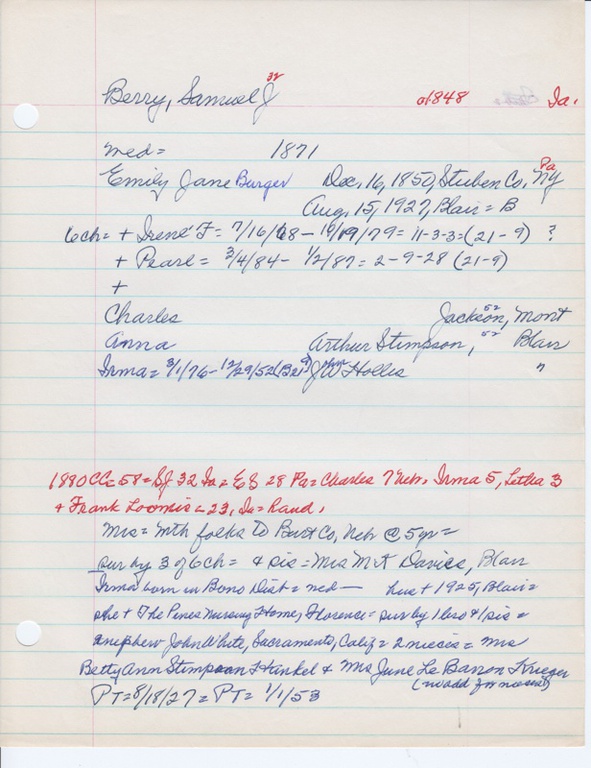 32
Berry, Samuel J c1848 Ia.
med = 1871 Pa
Emily Jane Burger Dec. 16, 1850, Stuben Co, NY
Aug. 15, 1927, Blair = B
6ch = + Irene F = 7/16/68 – 10/19/79 = 11-3-3 = (21-9) ?
+ Pearl = 3/4/84 – 1/2/87 = 2-9-28 (21-9)
+
Charles Jackson, 52 Mont
Anna Arthur Stimpson, 52 Blair
Irma = 3/1/76 – 12/29/52 (B21-9) John W Hollis "
1880 CC = 58 = SJ 32 Ia = EJ 28 Pa = Charles 7 Neb, Irma 5, Letha 3
+ Frank Loomis = 23, Ia = hand.
Mrs = Mth folks to Burt Co, Neb @ 5yr =
sur by 3 of 6ch = & sis = Mrs M A Davies, Blair
Irma born in Bono Dist = med — hus + 1925, Blair =
she + The Pines Nursing Home, Florence = sur by 1 bro & 1 sis =
a nephew John White, Sacramento, Calif = 2 nieces = Mrs
Betty Ann Stimpson Hinkel & Mrs June Le Barron Krieger
(no add for nieces)
PT = 8/18/27 = PT = 1/1/53